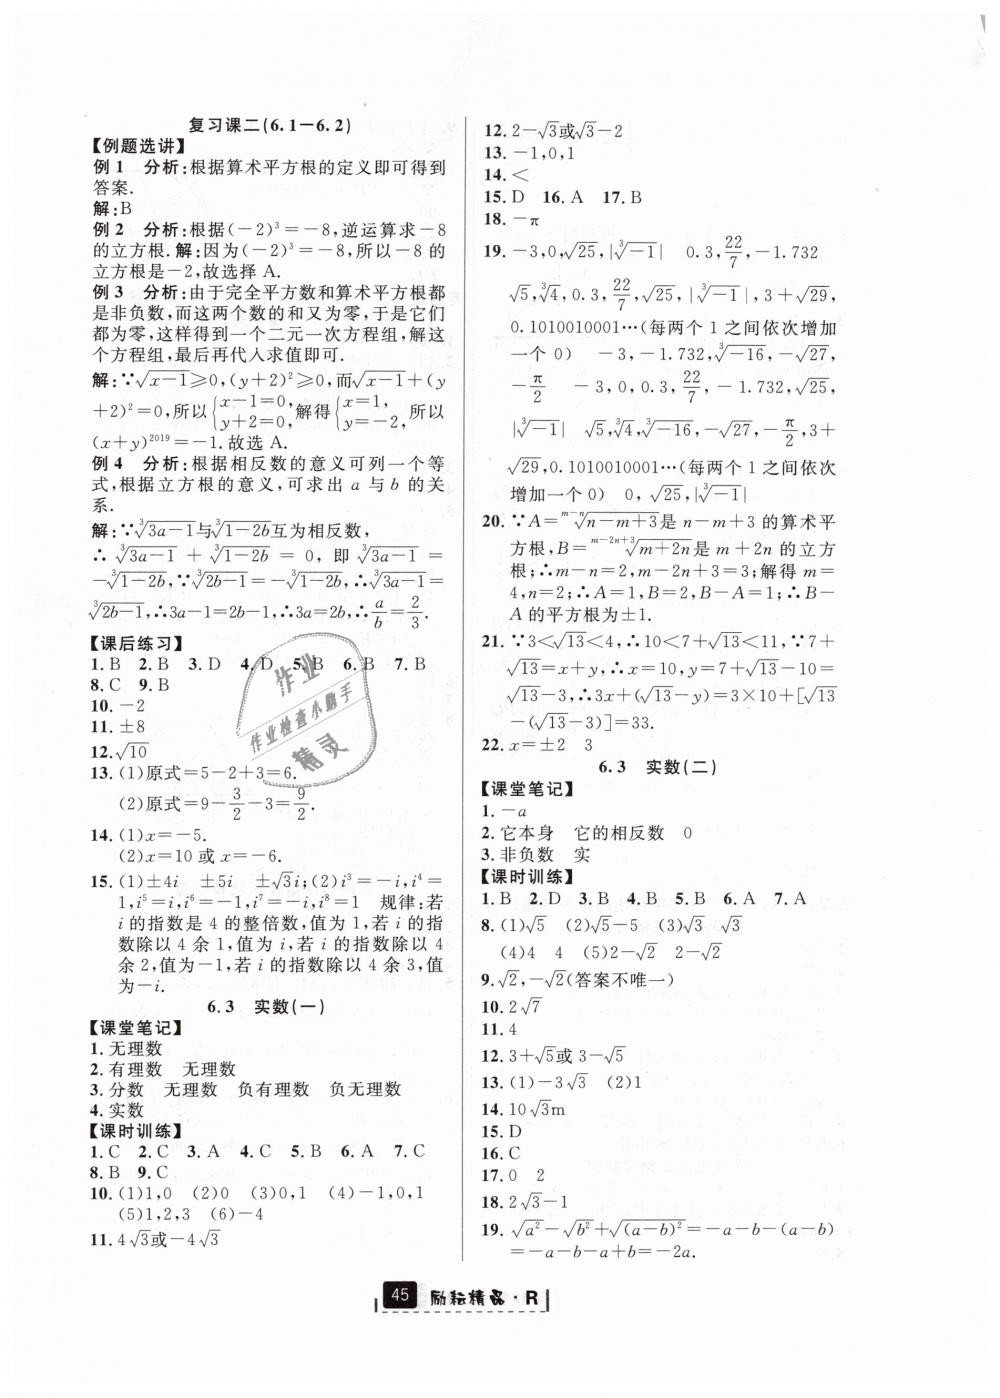 复习课二(6.1－6.2)
【例题选讲】
例 1　分析:根据算术平方根的定义即可得到
答案.
解:B
例 2　分析:根据(－2)³＝－8,逆运算求－8
的立方根.解:因为(－2)³＝－8,所以－8
的立方根是－2,故选择 A.
例 3　分析:由于完全平方数和算术平方根都
是非负数,而这两个数的和又为零,于是它们
都为零,这样得到一个二元一次方程组,解这
个方程组,最后再代人求值即可.
解:∵√(x－1)≥0,(y＋2)²≥0,而√(x－1)＋(y
＋2)²＝0,所以{x－1＝0, y＋2＝0, 解得{x＝1, y＝－2, 所以
(x＋y)²⁰¹⁹＝－1.故选 A.
例 4　分析:根据相反数的意义可列一个等
式,根据立方根的意义,可求出 a 与 b 的关
系.
解:∵∛(3a－1)与∛(1－2b)互为相反数,
∴ ∛(3a－1) ＋ ∛(1－2b) ＝ 0, 即 ∛(3a－1) ＝
－∛(1－2b),∵∛(2b－1)＝－∛(1－2b),∴∛(3a－1)＝
∛(2b－1),∴3a－1＝2b－1,∴3a＝2b,∴a/b＝2/3.
【课后练习】
1. B　2. B　3. D　4. D　5. B　6. B　7. B
8. C　9. B
10. －2
11. ±8
12. √10
13. (1)原式＝5－2＋3＝6.
(2)原式＝9－3/2－3＝9/2.
14. (1)x＝－5.
(2)x＝10 或 x＝－6.
15. (1)±4i　±5i　±√3i;(2)i³＝－i,i⁴＝
1,i⁵＝i,i⁶＝－1,i⁷＝－i,i⁸＝1　规律:若
i 的指数是 4 的整倍数,值为 1,若 i 的指
数除以 4 余 1,值为 i,若 i 的指数除以 4
余 2,值为－1,若 i 的指数除以 4 余 3,值
为－i.
6.3　实数(一)
【课堂笔记】
1. 无理数
2. 有理数　无理数
3. 分数　无理数　负有理数　负无理数
4. 实数
【课时训练】
1. C　2. C　3. A　4. C　5. B　6. A　7. C
8. B　9. C
10. (1)1,0　(2)0　(3)0,1　(4)－1,0,1
(5)1,2,3　(6)－4
11. 4√3或－4√3
12. 2－√3或√3－2
13. －1,0,1
14. ＜
15. D　16. A　17. B
18. －π
19. －3,0,√25,|∛－1|　0.3,22/7,－1.732
√5,∛4,0.3,22/7,√25,|∛－1|,3＋√29,
0.1010010001…(每两个 1 之间依次增加
一个 0)　－3,－1.732,∛－16,－√27,
－π/2　－3,0,0.3,22/7,－1.732,√25,
|∛－1|　√5,∛4,∛－16,－√27,－π/2,3＋
√29,0.1010010001…(每两个 1 之间依次
增加一个 0)　0,√25,|∛－1|
20. ∵A＝ᵐ⁻ⁿ√(n－m＋3)是 n－m＋3 的算术平
方根,B＝ᵐ⁻²ⁿ⁺³√(m＋2n)是 m＋2n 的立方
根;∴m－n＝2,m－2n＋3＝3;解得 m＝
4,n＝2;∴A＝1,B＝2,B－A＝1;∴B－
A 的平方根为±1.
21. ∵3＜√13＜4,∴10＜7＋√13＜11,∵7＋
√13＝x＋y,∴x＝10,y＝7＋√13－10＝
√13－3,∴3x＋(√13－y)＝3×10＋[√13
－(√13－3)]＝33.
22. x＝±2　3
6.3　实数(二)
【课堂笔记】
1. －a
2. 它本身　它的相反数　0
3. 非负数　实
【课时训练】
1. B　2. D　3. B　4. B　5. B　6. A　7. A
8. (1)√5　(2)√5－5　(3)√3　√3
(4)4　4　(5)2－√2　2－√2
9. √2,－√2(答案不唯一)
10. 2√7
11. 4
12. 3＋√5或 3－√5
13. (1)－3√3　(2)1
14. 10√3m
15. D
16. C
17. 0　2
18. 2√3－1
19. √a²－√b²＋√(a－b)²＝－a－b－(a－b)
＝－a－b－a＋b＝－2a.
作业
作业检查小助手
精灵
45 励耘精品·R